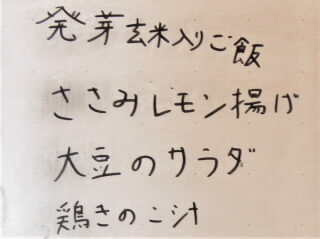 発芽玄米入りご飯
ささみレモン揚げ
大豆のサラダ
鶏きのこシチ